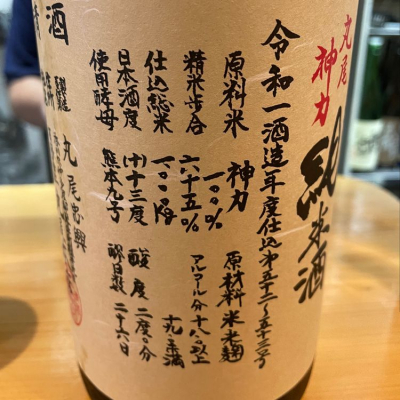 丸尾
神力
純米酒
令和一酒造年度仕込第五十二～五十三号
原料米 神力 一〇〇% 原材料 米 米麹
精米歩合 六十五% アルコール分 十八度以上十九度未満
仕込総米 一〇〇〇kg
日本酒度 (+)十三度 酸度 二度〇分
使用酵母 熊本九号 醪日数 二十六日
丸尾忠興
酒